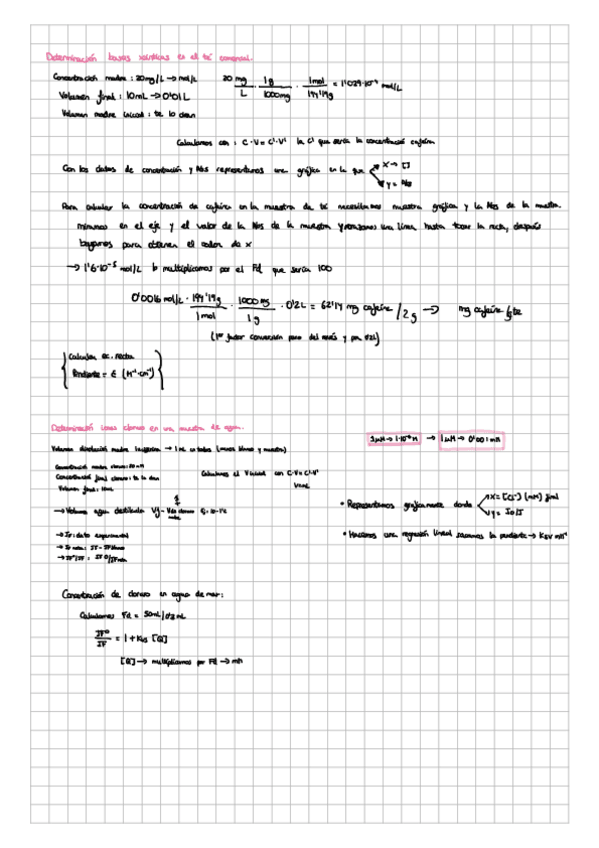 Determinación bases xánticas en el té comercial.
Concentración madre : 20mg/L → mol/L 20 mg/L · 1g/1000mg · 1mol/194'19g = 1'029·10⁻⁴ mol/L
Volumen final : 10mL → 0'01L
Volumen madre inicial : te lo dan
Calculamos con : C·V = C'·V' la C' que sería la concentración cafeína
Con los datos de concentración y Abs representamos una gráfica en la que x → []
y = Abs
Para calcular la concentración de cafeína en la muestra de té necesitamos nuestra gráfica y la Abs de la muestra.
miramos en el eje y el valor de la Abs de la muestra y trazamos una línea hasta tocar la recta, después
bajamos para obtener el valor de x
→ 1'6·10⁻⁵ mol/L lo multiplicamos por el Fd que sería 100
0'0016 mol/L · 194'19g/1mol · 1000mg/1g · 0'2L = 62'14 mg cafeína/2g → mg cafeína/g té
(1er factor conversión paso del anís y por 0'2L)
Calcular ec. recta
Pendiente = ε (M⁻¹·cm⁻¹)
Determinación iones cloruro en una muestra de agua.
1μM → 1·10⁻⁶M → 1μM → 0'001mM
Volumen disolución madre → 1mL en todos (menos blanco y muestra)
Concentración madre cloruro: 20mM
Concentración final cloruro : te la dan
Calculamos el V inicial con C·V = C'·V'
Volumen final : 10mL
• Representamos gráficamente donde x = [Cl⁻] (mM) final
y = I0/I
→ Volumen agua destilada Vf - V cloruro
→ IF: dato experimental
• Hacemos una regresión lineal sacamos la pendiente → Ksv mM⁻¹
→ IF neta : IF - IF blanco
→ IF°/IF : IF0/IF neta
Concentración de cloruro en agua de mar:
Calculamos Fd = 50mL/0'3mL
IF°/IF = 1 + Ksv [Cl]
[Cl] → multiplicamos por Fd → mM